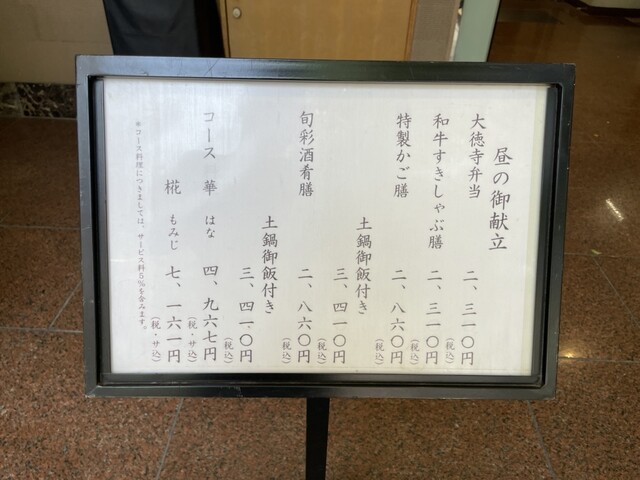 昼の御献立
大徳寺弁当 二、三一〇円(税込)
和牛すきしゃぶ膳 二、三一〇円(税込)
特製かご膳 二、八六〇円(税込)
土鍋御飯付き 三、四一〇円(税込)
旬彩酒肴膳 二、八六〇円(税込)
土鍋御飯付き 三、四一〇円(税込)
コース 華 はな 四、九六七円(税・サ込)
椛 もみじ 七、一六一円(税・サ込)
※コース料理につきましては、サービス料5%を含みます。